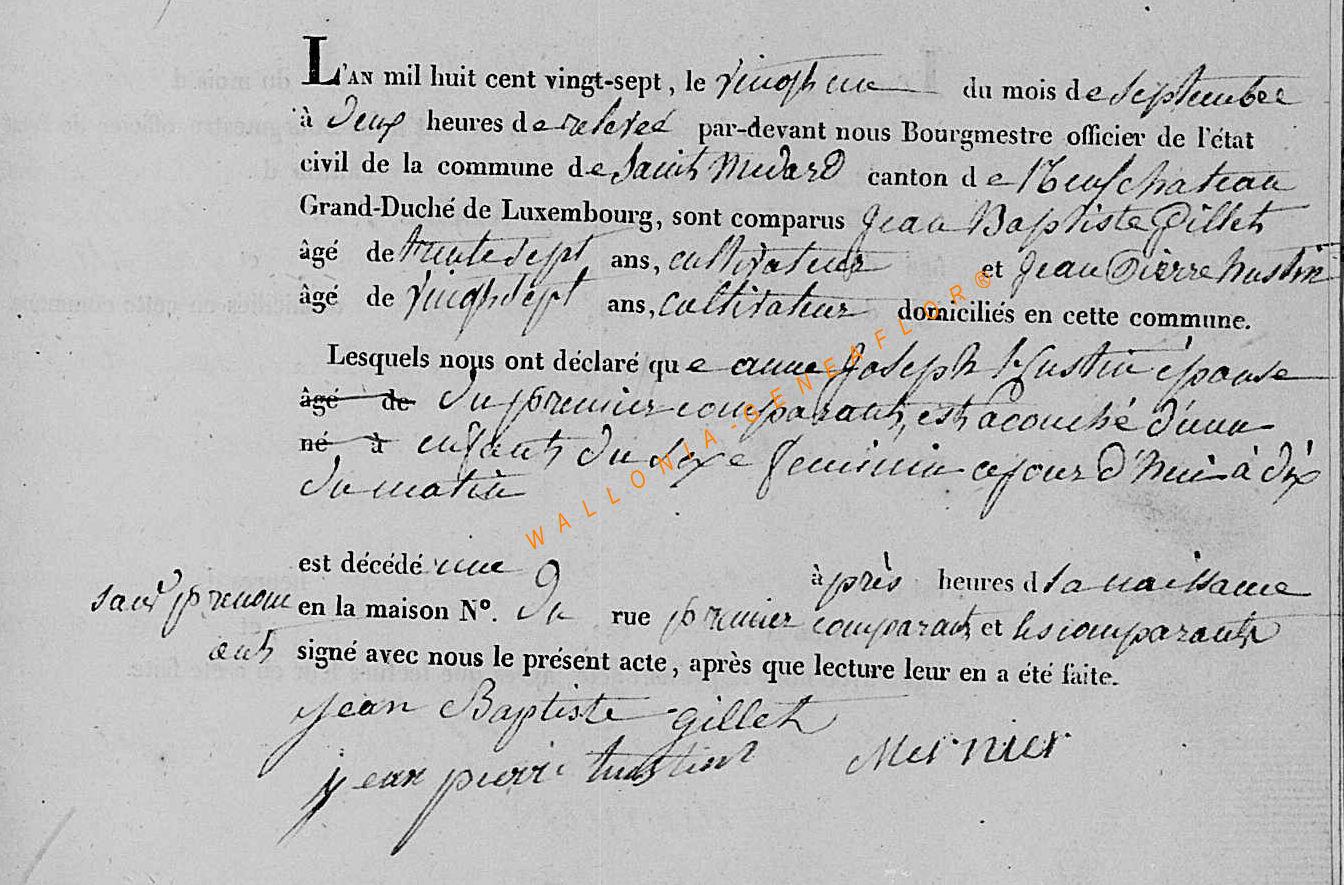 L'AN mil huit cent vingt-sept, le vingt une du mois de septembre
à deux heures de relevée par-devant nous Bourgmestre officier de l'état
civil de la commune de Saint Medard canton de Neufchateau
Grand-Duché de Luxembourg, sont comparus Jean Baptiste Gillet
âgé de trente sept ans, cultivateur et Jean Pierre hustin
âgé de vingt sept ans, cultivateur domiciliés en cette commune.
Lesquels nous ont déclaré que anne Joseph hustin épouse
âgé de du premier comparant, est acouché d'une
né à enfant du sexe feminin cejour d'hui à dix
du matin
est décédé une après heures d sa naissance
sans prenom en la maison N°. du rue premier comparant et les comparants
ont signé avec nous le présent acte, après que lecture leur en a été faite.
jean Baptiste gillet
jean pierre hustin Mernier
WALLONIA-GENEAFLOR®